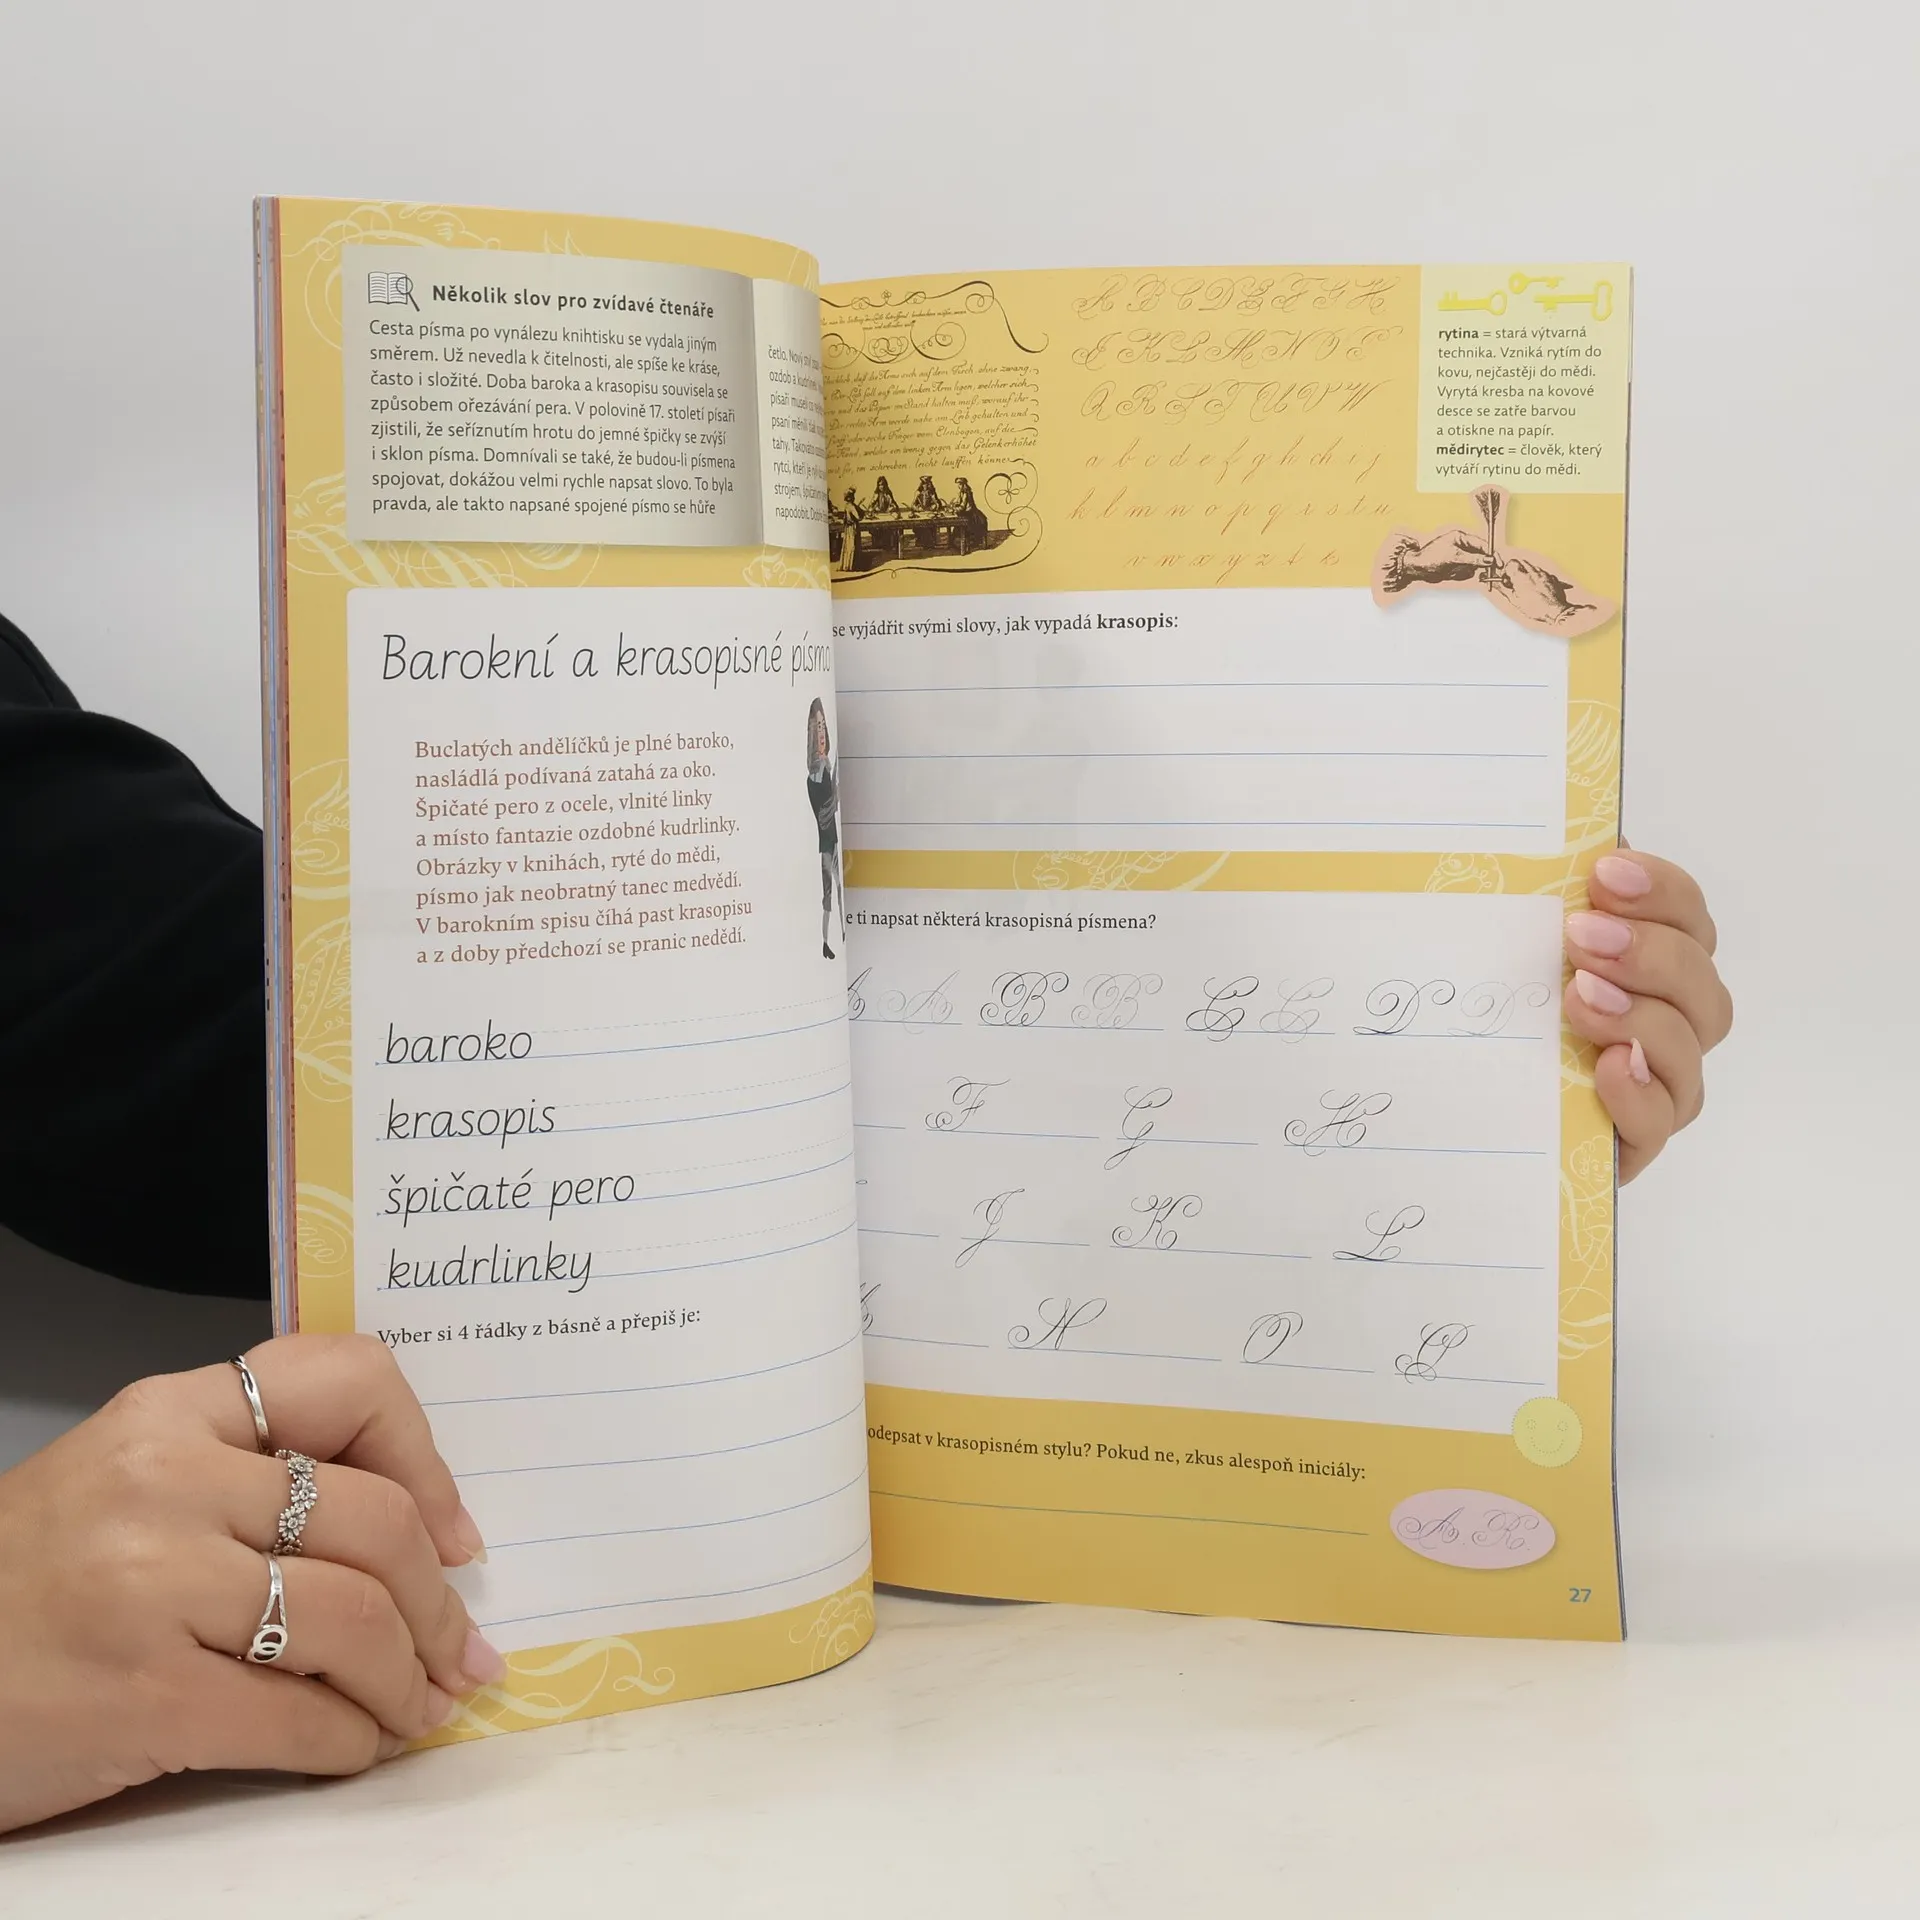 Několik slov pro zvídavé čtenáře
Cesta písma po vynálezu knihtisku se vydala jiným
směrem. Už nevedla k čitelnosti, ale spíše ke kráse,
často i složité. Doba baroka a krasopisu souvisela se
způsobem ořezávání pera. V polovině 17. století písaři
zjistili, že seříznutím hrotu do jemné špičky se zvýší
i sklon písma. Domnívali se také, že budou-li písmena
spojovat, dokážou velmi rychle napsat slovo. To byla
pravda, ale takto napsané spojené písmo se hůře
četlo. Nový
ozdob a
písaři museli
psaní měnili
tahy. Takováto
rytci, kteří je
strojem,
napodobit.
Barokní a krasopisné písmo
Buclatých andělíčků je plné baroko,
nasládlá podívaná zatahá za oko.
Špičaté pero z ocele, vlnité linky
a místo fantazie ozdobné kudrlinky.
Obrázky v knihách, ryté do mědi,
písmo jak neobratný tanec medvědí.
V barokním spisu číhá past krasopisu
a z doby předchozí se pranic nedědí.
baroko
krasopis
špičaté pero
kudrlinky
Vyber si 4 řádky z básně a přepiš je:
A B C D E F G H
K L M N O
R S T U V W
a b c d e f g h ch i j
k l m n o p q r s t u
v w x y z
rytina = stará výtvarná
technika. Vzniká rytím do
kovu, nejčastěji do mědi.
Vyrytá kresba na kovové
desce se zatře barvou
a otiskne na papír.
mědirytec = člověk, který
vytváří rytinu do mědi.
se vyjádřit svými slovy, jak vypadá krasopis:
e ti napsat některá krasopisná písmena?
A A B B C C D D
F G H
J K L
N O P
odepsat v krasopisném stylu? Pokud ne, zkus alespoň iniciály:
A. R.
27